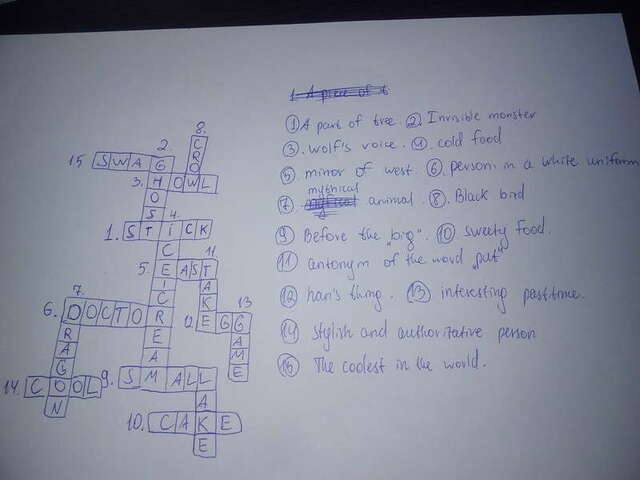 8.
2.
15 SWAG
CROW
3. HOWL
GHOST
4.
1. STICK
ICECREAM
11
5. EAST
TAKE
7.
13
6. DOCTOR
12 EGG
GAME
DRAGON
9. SMALL
14. COOL
LAKE
10. CAKE
1 A piece of
① A part of tree. ② Invisible monster
③. wolf's voice. ④. cold food
⑤. minor of west. ⑥. person in a white uniform
mythical
⑦. animal. ⑧. Black bird
⑨ Before the „big". ⑩. sweety food.
⑪ antonym of the word „put"
⑫ han's thing. ⑬ interesting pasttime.
⑭ Stylish and authoritative person
⑮ The coolest in the world.